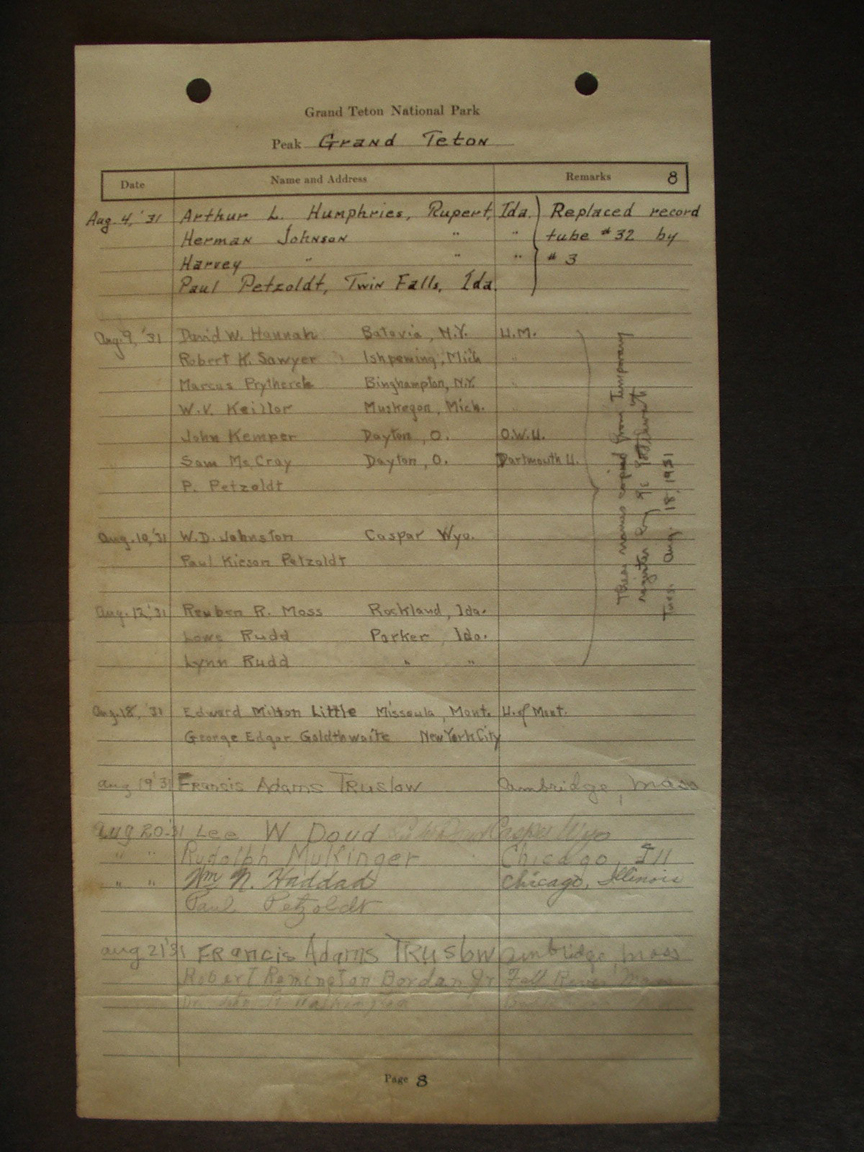 Grand Teton National Park
Peak Grand Teton
Date Name and Address Remarks 8
Aug. 4, '31 Arthur L. Humphries, Rupert, Ida. Replaced record
Herman Johnson " " tube #32 by
Harvey " " " #3
Paul Petzoldt, Twin Falls, Ida.
Aug. 9, '31 David W. Hannah Batavia, N.Y. U.M.
Robert K. Sawyer Ishpeming, Mich "
Marcus Prytherch Binghampton, N.Y. "
W.V. Keillor Muskegon, Mich. "
John Kemper Dayton, O. O.W.U.
Sam McCray Dayton, O. Dartmouth U.
P. Petzoldt
Aug. 10, '31 W.D. Johnston Caspar Wyo.
Paul Petzoldt
Aug. 12, '31 Reuben R. Moss Rockland, Ida.
Lowe Rudd Parker, Ida.
Lynn Rudd " "
These names copied from Temporary
register by
Tues. Aug. 18, 1931
Aug. 18, '31 Edward Milton Little Missoula, Mont. U. of Mont.
George Edgar Goldthwaite New York City
Aug 19 '31 Francis Adams Truslow Cambridge, Mass
Aug 20 '31 Lee W Doud Casper Wyo
" " Rudolph Chicago, Ill
" " Wm N. Haddad Chicago, Illinois
Paul Petzoldt
Aug 21 '31 Francis Adams Truslow Cambridge, Mass
Robert Remington Borden Jr Fall River, Mass
Page 8